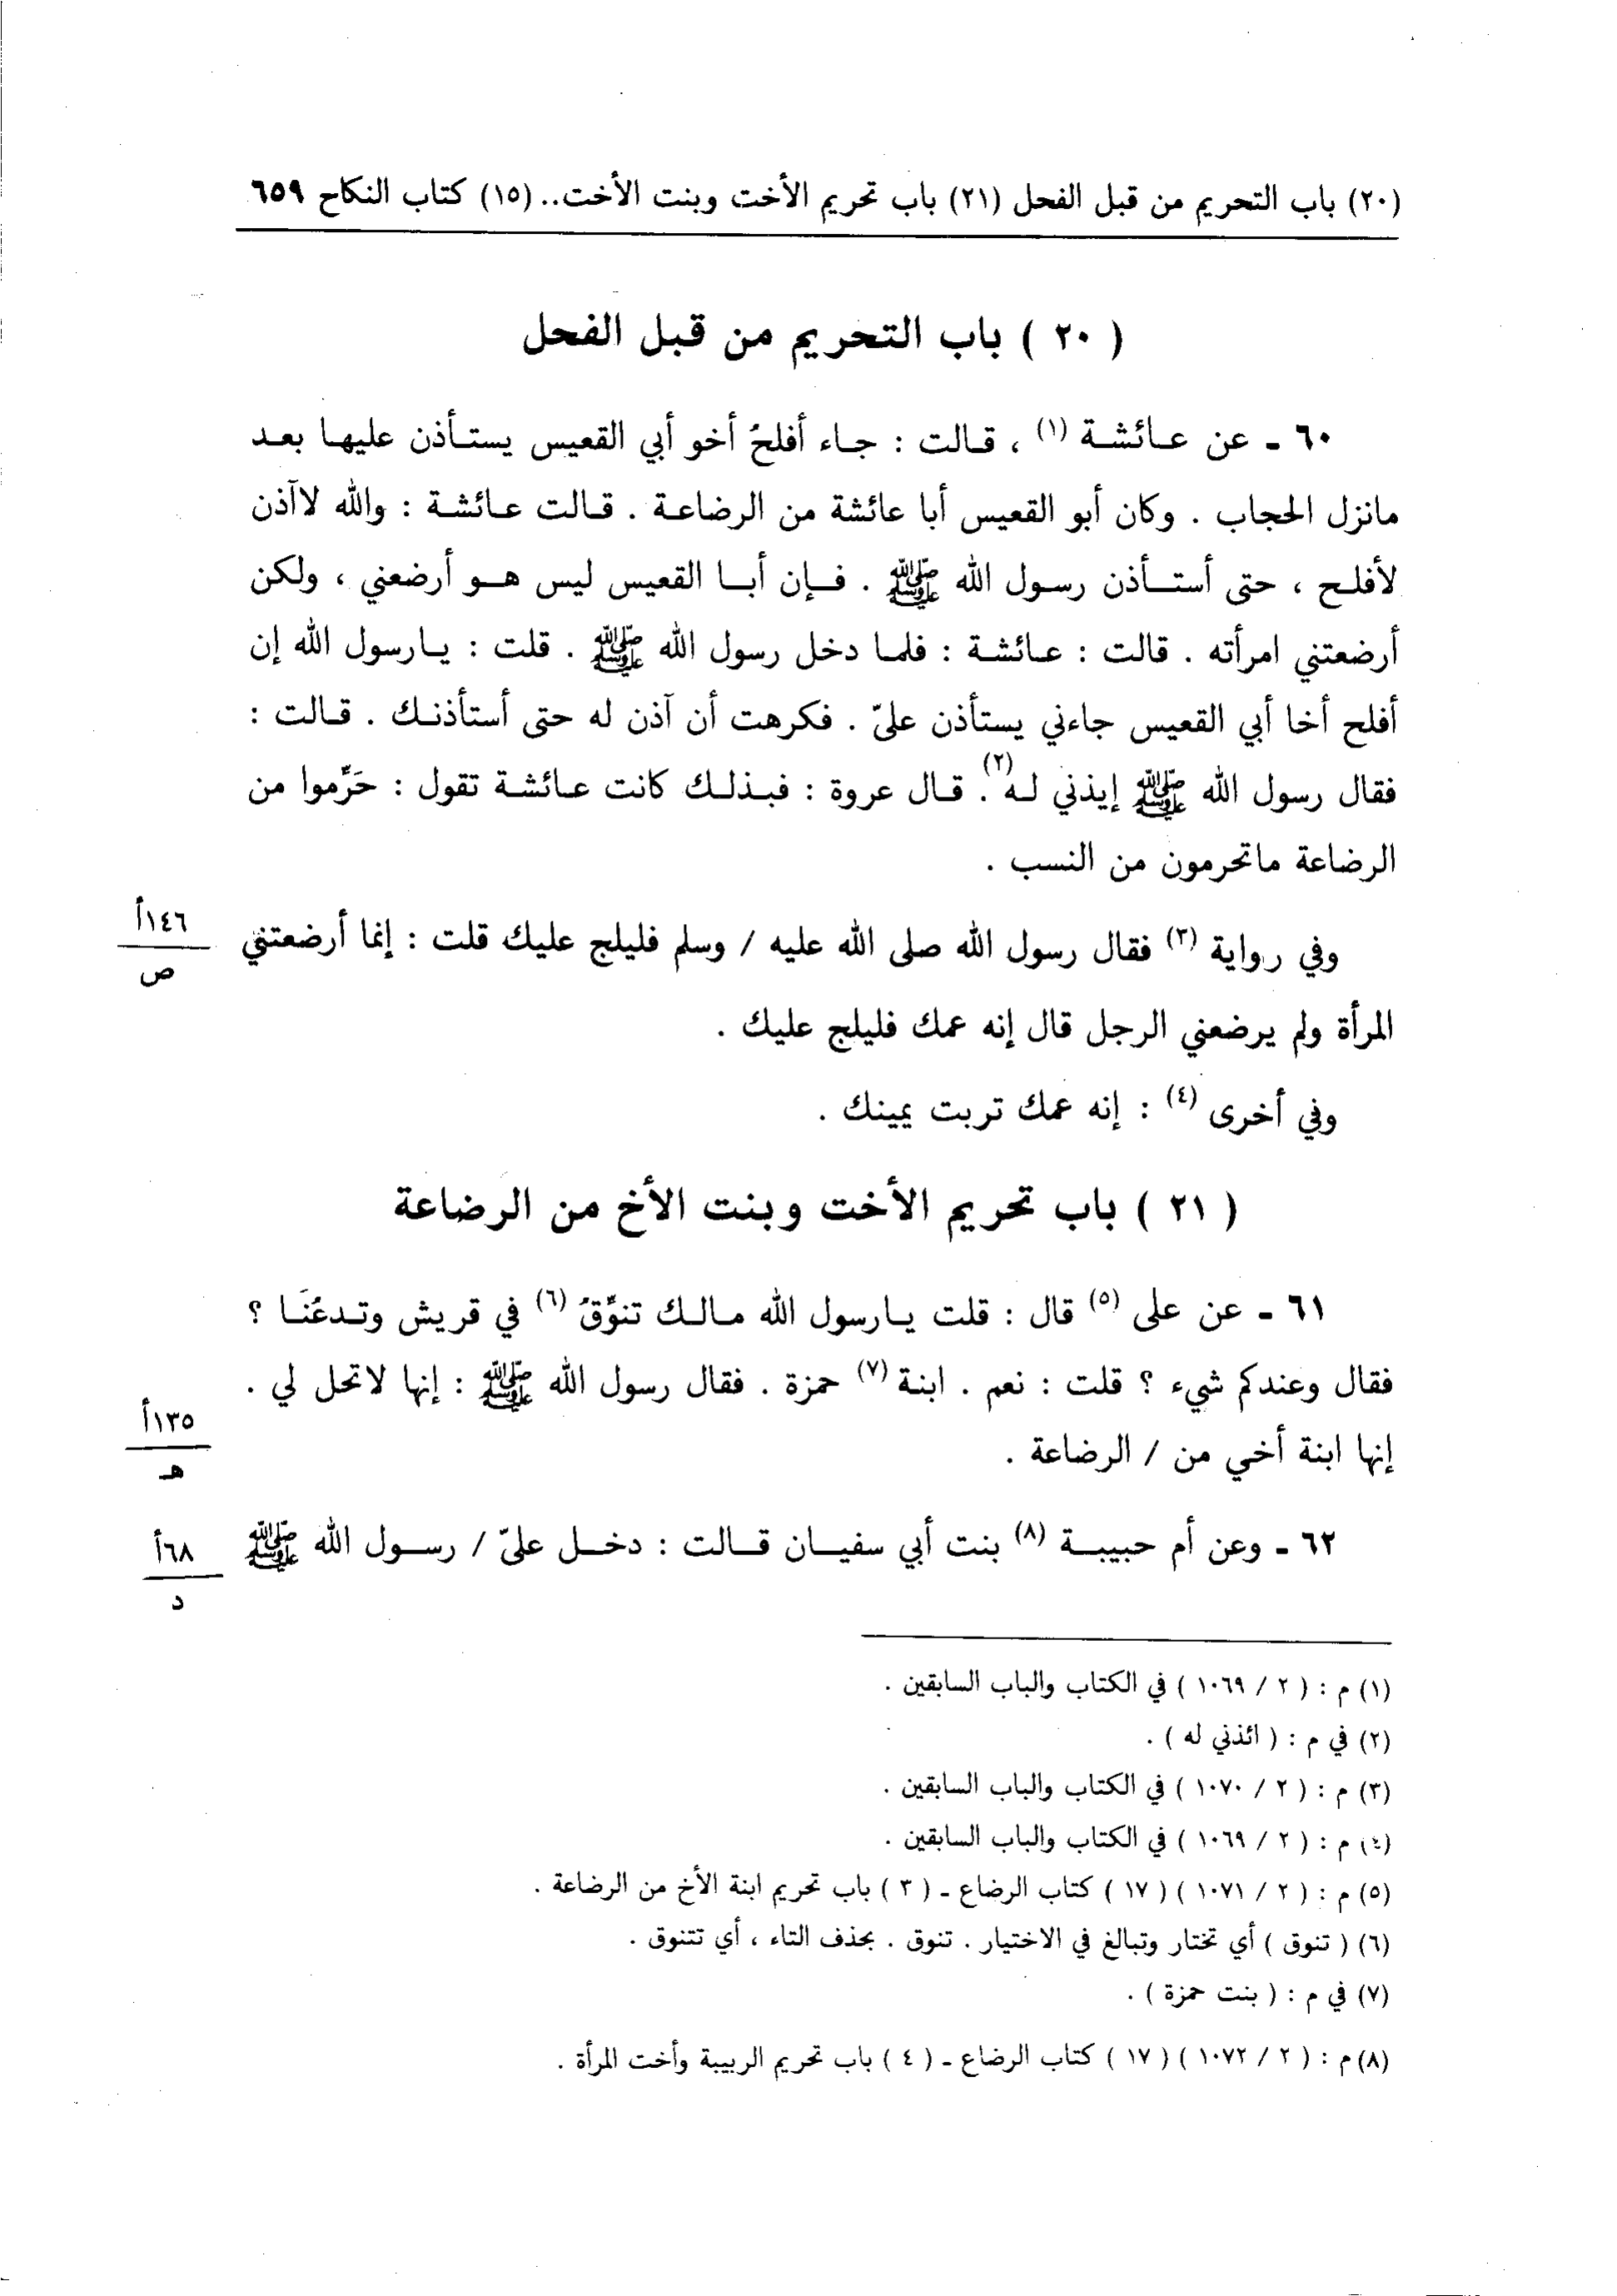 (٢٠) باب التحريم من قبل الفحل (٢١) باب تحريم الأخت وبنت الأخت.. (١٥) كتاب النكاح ٦٥٩
( ٢٠ ) باب التحريم من قبل الفحل
٦٠ - عن عائشة (١) ، قالت : جاء أفلحُ أخو أبي القعيس يستأذن عليها بعد
مانزل الحجاب . وكان أبو القعيس أبا عائشة من الرضاعة . قالت عائشة : والله لاآذن
لأفلح ، حتى أستأذن رسول الله ﷺ . فإن أبا القعيس ليس هو أرضعني ، ولكن
أرضعتني امرأته . قالت : عائشة : فلما دخل رسول الله ﷺ . قلت : يارسول الله إن
أفلح أخا أبي القعيس جاءني يستأذن عليّ . فكرهت أن آذن له حتى أستأذنك . قالت :
فقال رسول الله ﷺ إيذني له(٢). قال عروة : فبذلك كانت عائشة تقول : حَرِّموا من
الرضاعة ماتحرمون من النسب .
وفي رواية (٣) فقال رسول الله صلى الله عليه / وسلم فليلج عليك قلت : إنما أرضعتني
١٤٦أ
ص
المرأة ولم يرضعني الرجل قال إنه عمك فليلج عليك .
وفي أخرى (٤) : إنه عمك تربت يمينك .
( ٢١ ) باب تحريم الأخت وبنت الأخ من الرضاعة
٦١ - عن على (٥) قال : قلت يارسول الله مالك تنوَّقُ (٦) في قريش وتدعُنَا ؟
فقال وعندكم شيء ؟ قلت : نعم . ابنة (٧) حمزة . فقال رسول الله ﷺ : إنها لاتحل لي .
١٣٥أ
هـ
إنها ابنة أخي من / الرضاعة .
٦٢ - وعن أم حبيبة (٨) بنت أبي سفيان قالت : دخل عليّ / رسول الله ﷺ
٦٨أ
د
(١) م : ( ٢ / ١٠٦٩ ) في الكتاب والباب السابقين .
(٢) في م : ( ائذني له ) .
(٣) م : ( ٢ / ١٠٧٠ ) في الكتاب والباب السابقين .
(٤) م : ( ٢ / ١٠٦٩ ) في الكتاب والباب السابقين .
(٥) م : ( ٢ / ١٠٧١ ) ( ١٧ ) كتاب الرضاع - ( ٣ ) باب تحريم ابنة الأخ من الرضاعة .
(٦) ( تنوق ) أي تختار وتبالغ في الاختيار . تنوق . بحذف التاء ، أي تتنوق .
(٧) في م : ( بنت حمزة ) .
(٨) م : ( ٢ / ١٠٧٢ ) ( ١٧ ) كتاب الرضاع - ( ٤ ) باب تحريم الربيبة وأخت المرأة .